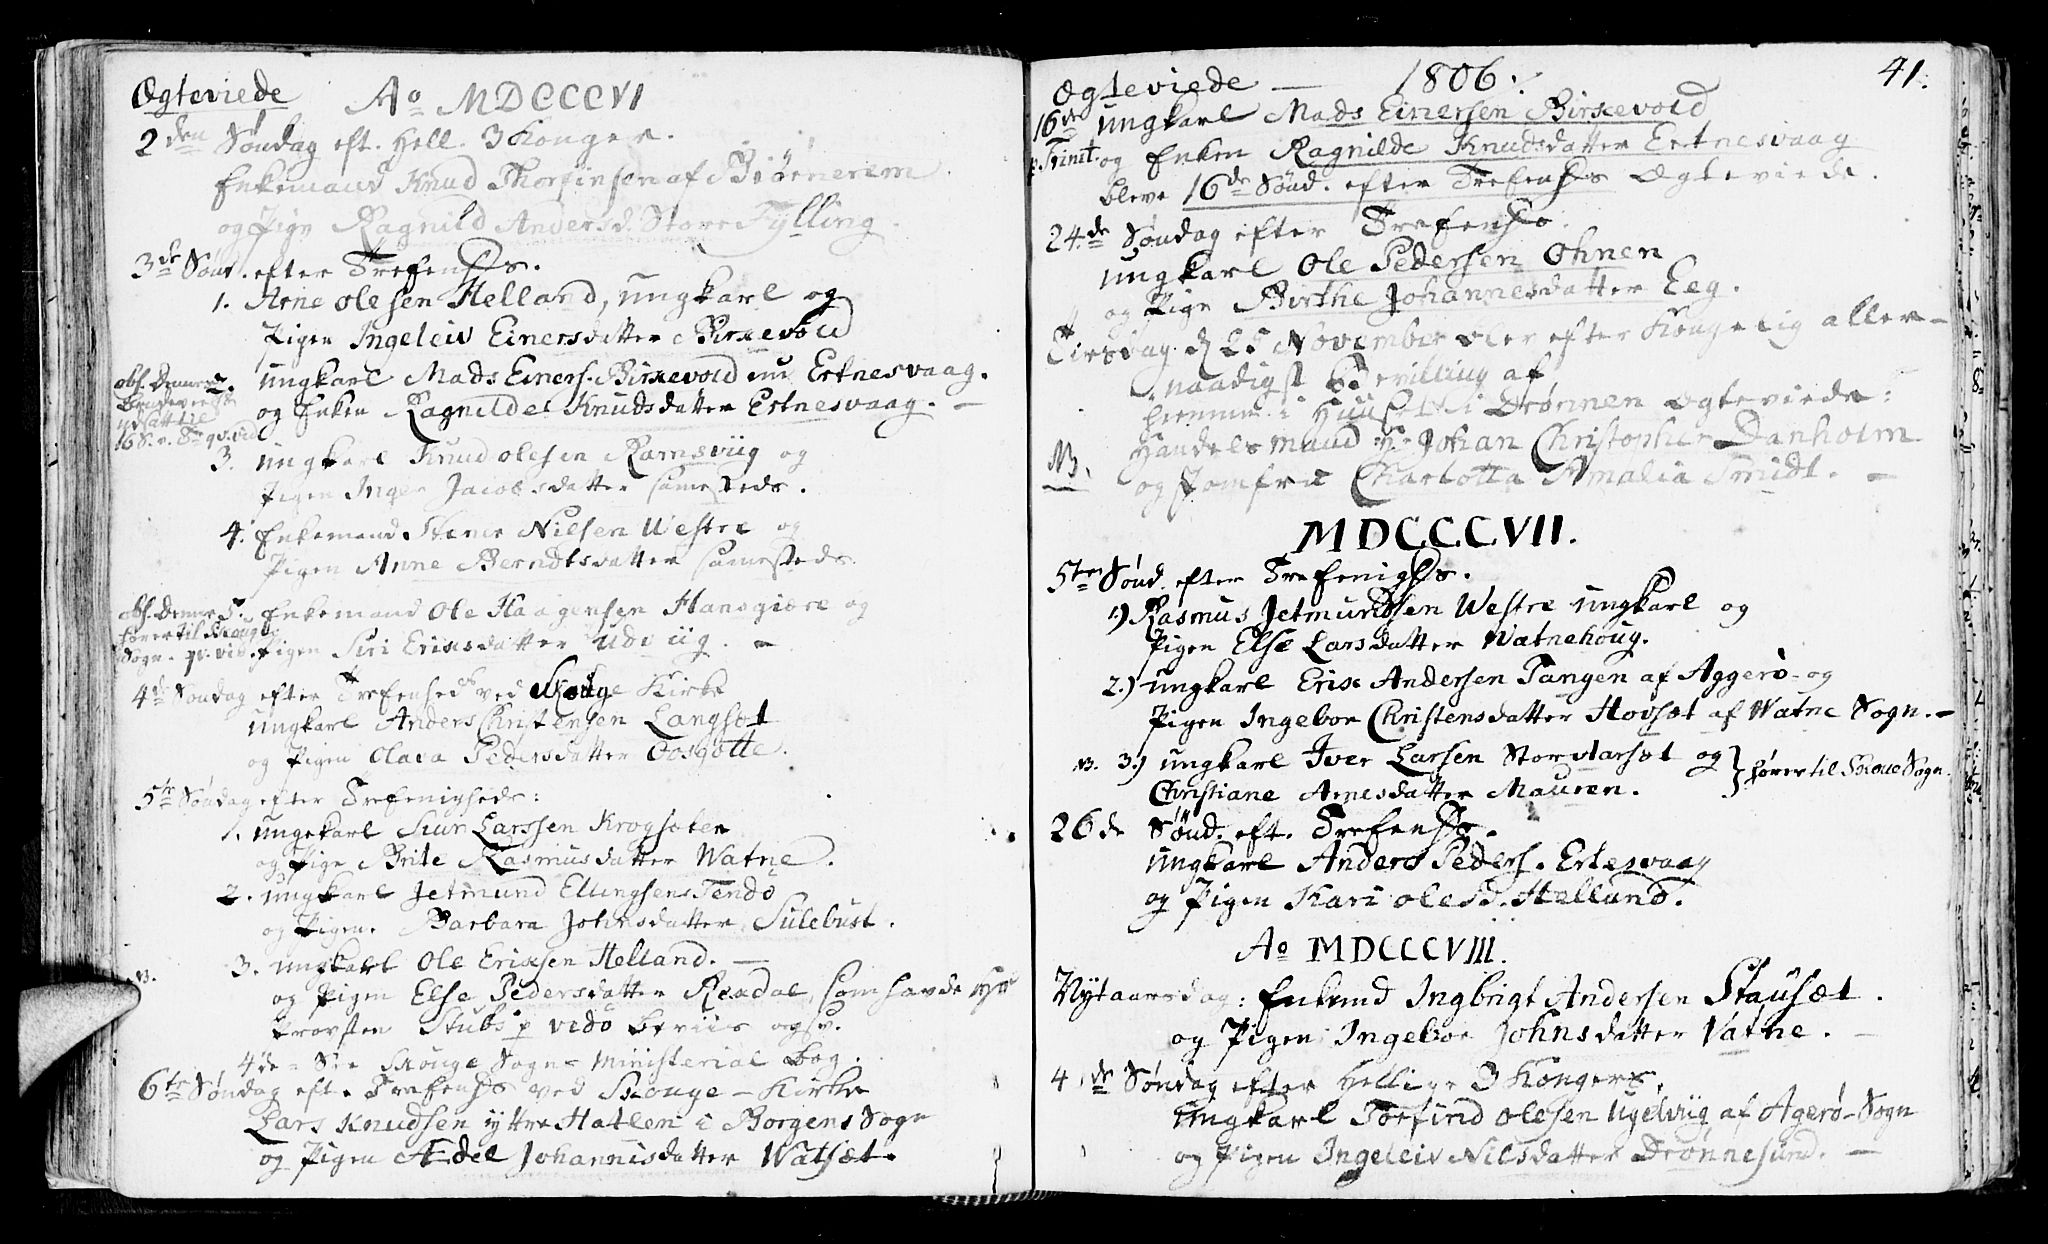 Ægteviede Ao MDCCCVI
2den Søndag eft. Hell. 3 Konger.
Enkemand Knud Thorfinsen af Biørnerem
og Pige Ragnild Andersd. Store Fylling.
3de Sønd. efter Trefheds.
1. Arne Olesen Helland, ungkarl og
Pigen Ingeleiv Einersdatter Birkevold
obs. Denne 2. ungkarl Mads Einers. Birkevold nu Ertnesvaag.
udsat til og Enken Ragnilde Knudsdatter Ertnesvaag. —
16 S. p. Tr. qv. vid.
3. ungkarl Knud Olesen Ramsviig og
Pigen Inger Jacobsdatter sammesteds.
4. Enkemand Nilsen Westre og
Pigen Anne Berndtsdatter sammesteds.
obs. Denne 5. Enkemand Ole Haagensen Hansgiære og
hører til Skouge
Sogn. qv. vid. Pigen Siri Eriksdatter Udviig. —
4de Søndag efter Trefenhed ved Skouge Kirke
ungkarl Anders Christensen Langsæt
og Pigen Olava Pedersdatter Oosgotte.
5te Søndag efter Trefenigheds:
1. ungekarl Siur Larssen Krogsæter
og Pige Brite Rasmusdatter Watne.
2. ungkarl Jetmund Ellingsens Tendø
og Pigen. Barbara Johnsdatter Sulebust.
NB. 3. ungkarl Ole Eriksen Helland. —
og Pigen Else Pedersdatter Rekdal, som havde
Provsten Stubs p vidø beviis ogsv.
4de - See Skouge Sogns Ministerial bog.
6te Søndag eft. Trefenhds ved Skouge - Kirke
Lars Knudsen yttre Hatlem i Borgens Sogn
og Pigen Ædel Johannisdatter Watsæt.
Ægteviede — 1806. 41.
16de ungkarl Mads Einersen Birkevold
p. Trinit. og Enken Ragnilde Knudsdatter Ertnesvaag
bleve 16de Sønd. efter Trefenhds Ægteviede.
24de Søndag efter Trefenhds.
ungkarl Ole Pedersen Ohnen
og Pige Birthe Johannesdatter Eeg.
Tirsdag. d. 25 November efter Kongelig aller-
naadigst Bevilling af
hiemme i Huuset i Drønnen Ægteviede:
NB. Handelsmand Hr. Johan Christopher Danholm
og Jomfru Charlotta Amalia Smidt. —
MDCCCVII.
5te Sønd. efter Trefenighds.
1.) Rasmus Jetmundsen Westre ungkarl og
Pigen Else Larsdatter Watnehoug.
2.) ungkarl Erik Andersen Tangen af Aggerø - og
Pigen Ingebor Christensdatter Hovsæt af Watne Sogn. —
NB. 3.) ungkarl Iver Larsen Stor Aarsæt og } hører til Skoue Sogn.
Christiane Arnesdatter Mauren.
26de Sønd. eft. Trefenhds.
ungkarl Anders Peders. Ertesvaag
og Pigen Kari Olesd. Helland.
Ao MDCCCVIII.
Nytaarsdag: Enkemd Ingbrigt Andersen Stausæt.
og Pigen Ingebor Johnsdatter Vatne. —
4de Søndag efter Hellige 3 Kongers.
ungkarl Torfind Olesen Ugelviig af Agerø - Sogn
og Pigen Ingeleiv Nilsdatter Drønnesund. —